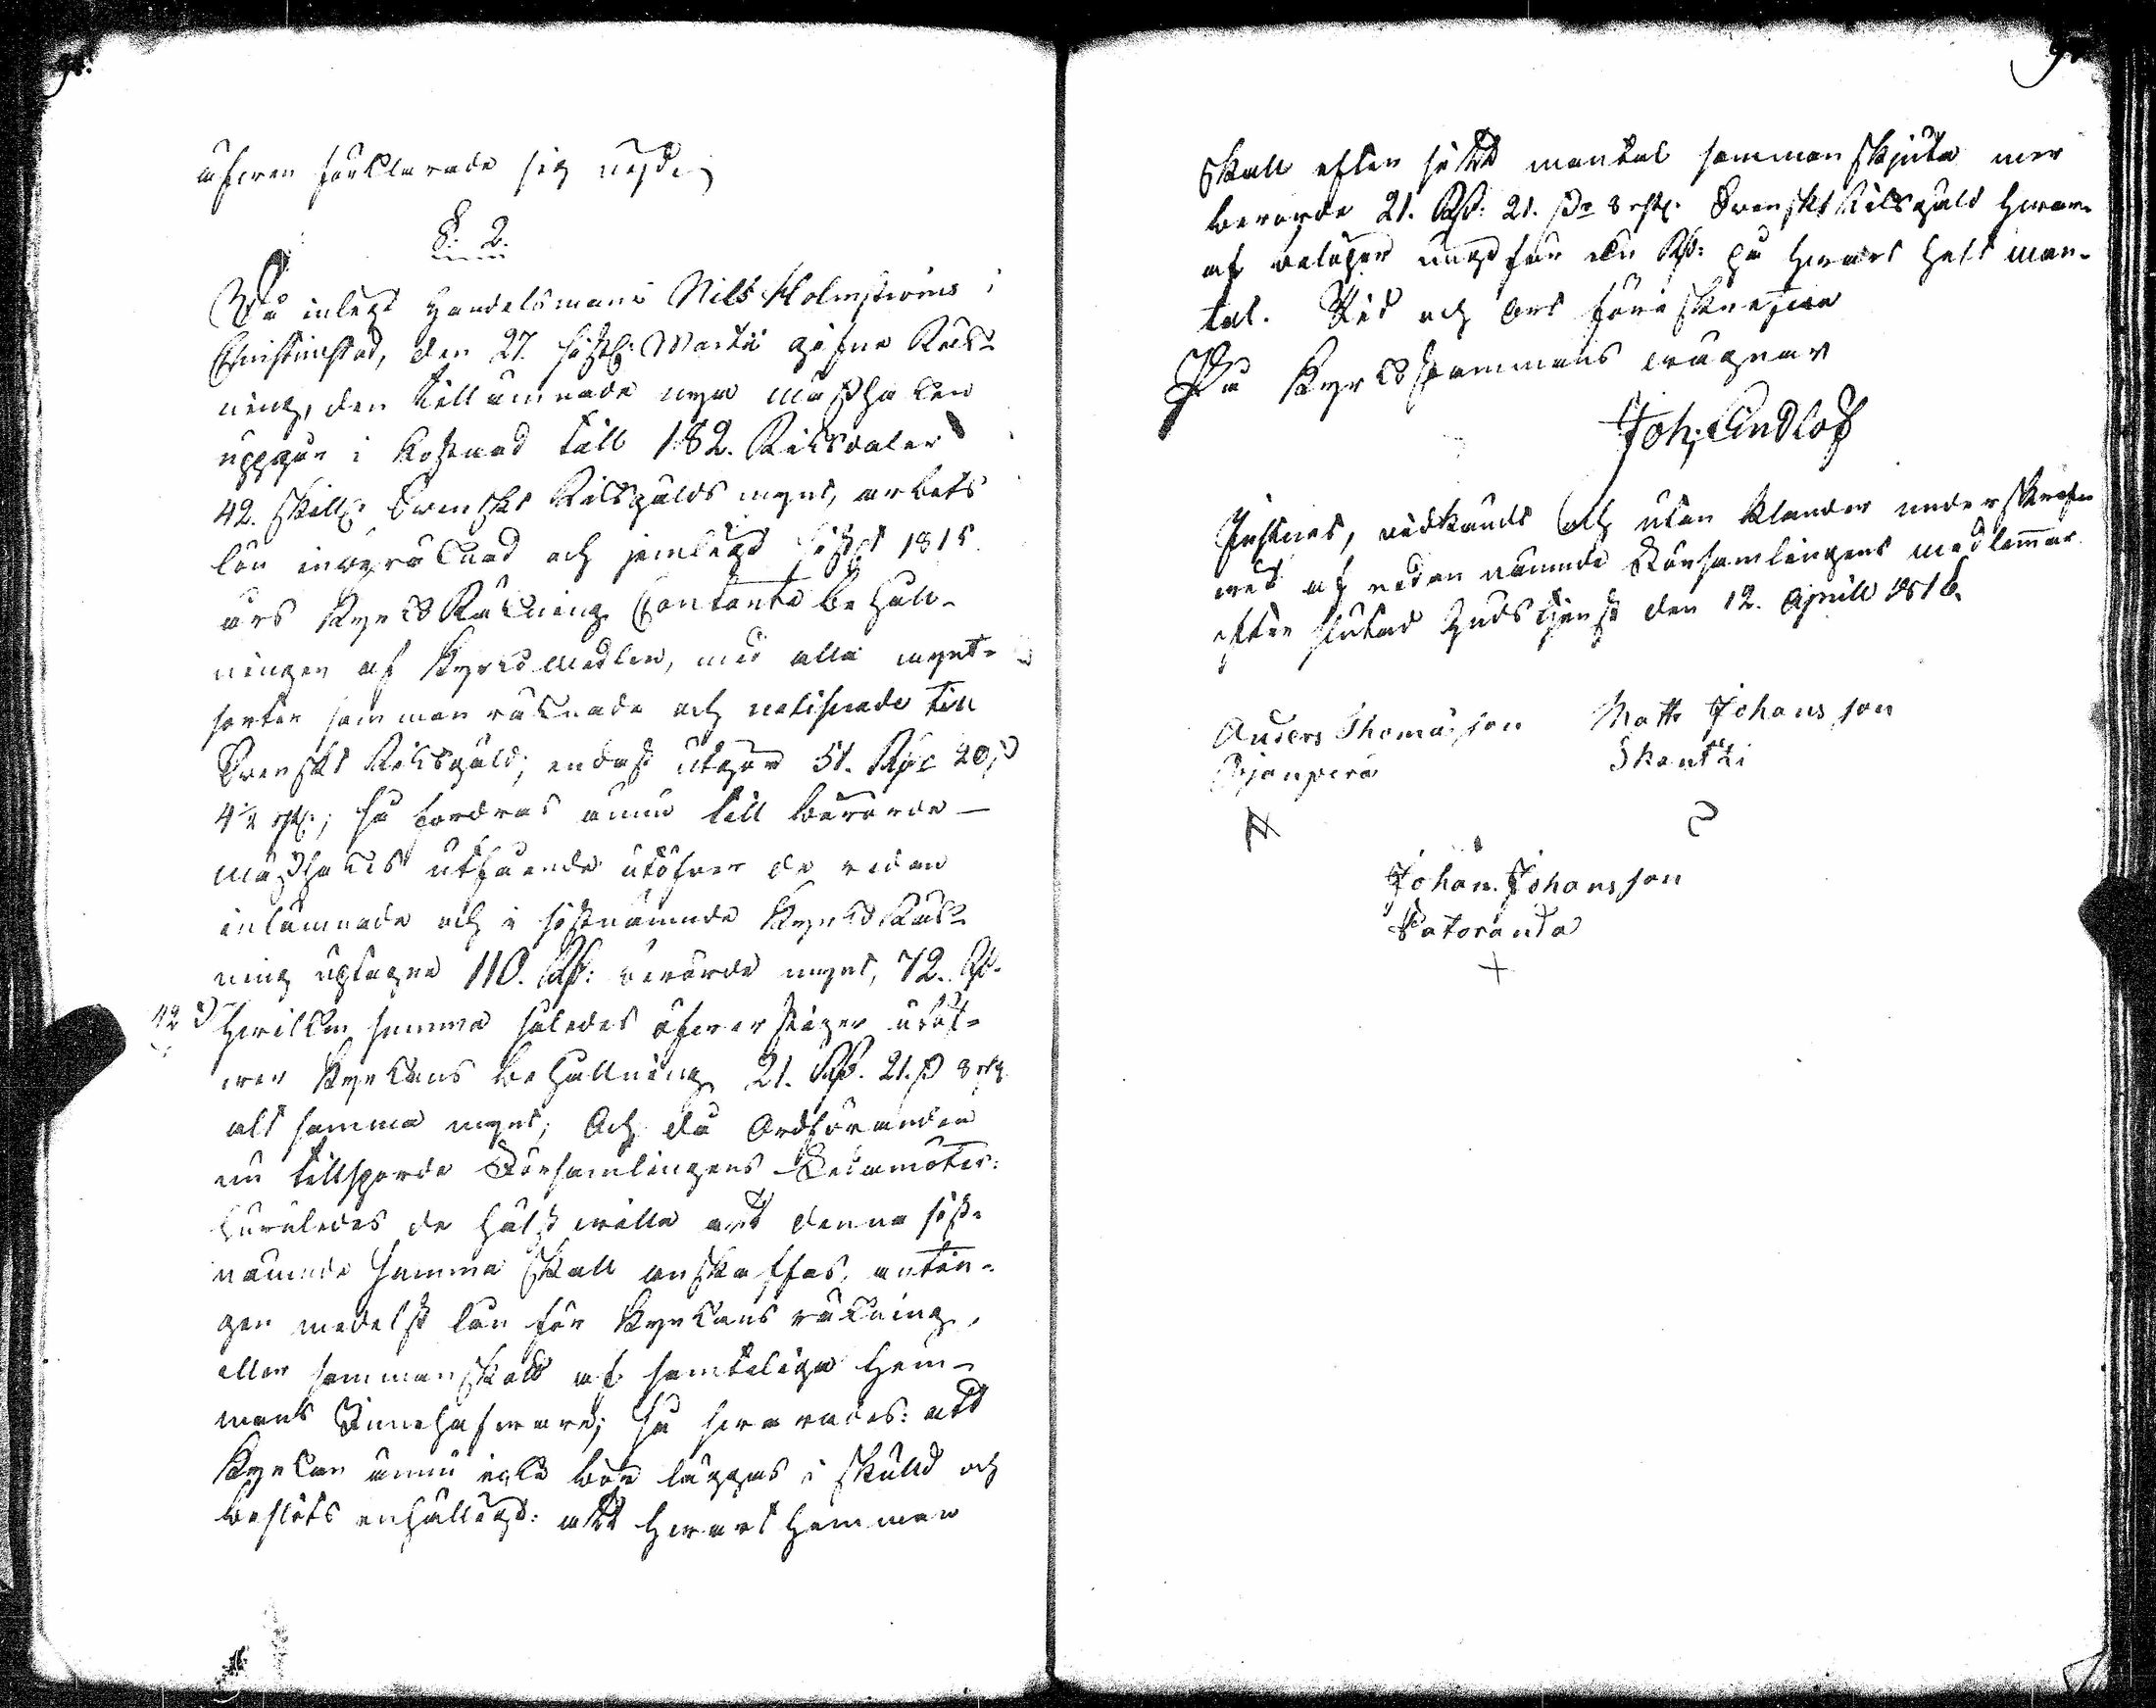 äfwen förklarade sig nögd.
§. 2.
Då inlägt Handelsmans Nils Holmströms i
Christinestad, den 27. sistl: Martii gifne Räk-
ning, den tillämnade nya mässhaken
uppgår i kostnad till 182. Riksdaler
42. skill: Swenskt Riksgälds mynt, arbets
lön inberäknad och jemlikt sistl. 1815
års Kyrko Räkning Contanta behåll-
ningen af Kyrko medlen, med alla mynt-
sorter sammanräknade och reducerade till
Swenskt Riksgäld; endast utgör 51. Rd: 20 s
4½ rst:; så fordras ännu till berörde
mässhakes utfående utöfwer de redan
inlämnade och i sistnämnde Kyrko Räk-
ning uptagne 110. Rd: berörde mynt, 72. Rd.
42 s hwilken summa således öfwerstiger utöf-
wer Kyrkans behållning 21. Rd. 21. s 8 rst.
alt samma mynt; Och då Ordföranden
nu tillsporde Församlingens Ledamöter:
huruledes de hälst wille att denna sist-
nämnde summa skall anskaffas, antin-
gen medelst lån för Kyrkans räkning,
eller sammanskott af samtelige Hem-
mans Innehafware; så swarades: att
Kyrkan ännu icke bör läggas i skuld och
beslöts enhälligt: att hwart Hemman
skall efter sitt mantal sammanskjuta mer
berörde 21. Rd: 21. s 8 rst. Swenskt Riksgäld hwar-
af belöper ungefär en Rd: på hwart helt man-
tal. Tid och Ort föreskrefne
På Kyrkostämmans wägnar
Joh: Lindlöf
Justerat, widkändt och utan klander underskref-
wet af nedan nämnde Församlingens medlemmar
efter slutad Gudstjenst den 12. Aprill 1816.
Anders Thomasson Matts Johansson
Skantzi
Johan Johansson
Patoranta
+